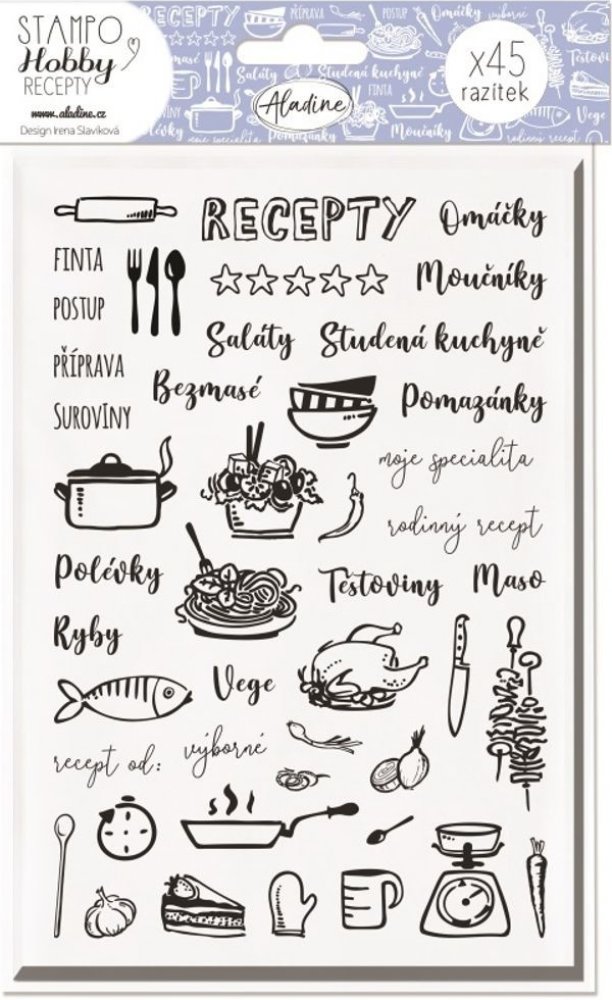 STAMPO
Hobby
RECEPTY
www.aladine.cz
Design Irena Slavíková
RECEPTY
PŘÍPRAVA
POSTUP
Omáčky
výborné
Saláty
Studená kuchyně
FINTA
Aladine
Pomazánky
Moučníky
moje specialita
rodinný recept
Vege
x45
razítek
RECEPTY
Omáčky
FINTA
POSTUP
Moučníky
Saláty
Studená kuchyně
PŘÍPRAVA
Bezmasé
Pomazánky
SUROVINY
moje specialita
rodinný recept
Polévky
Těstoviny
Maso
Ryby
Vege
recept od:
výborné